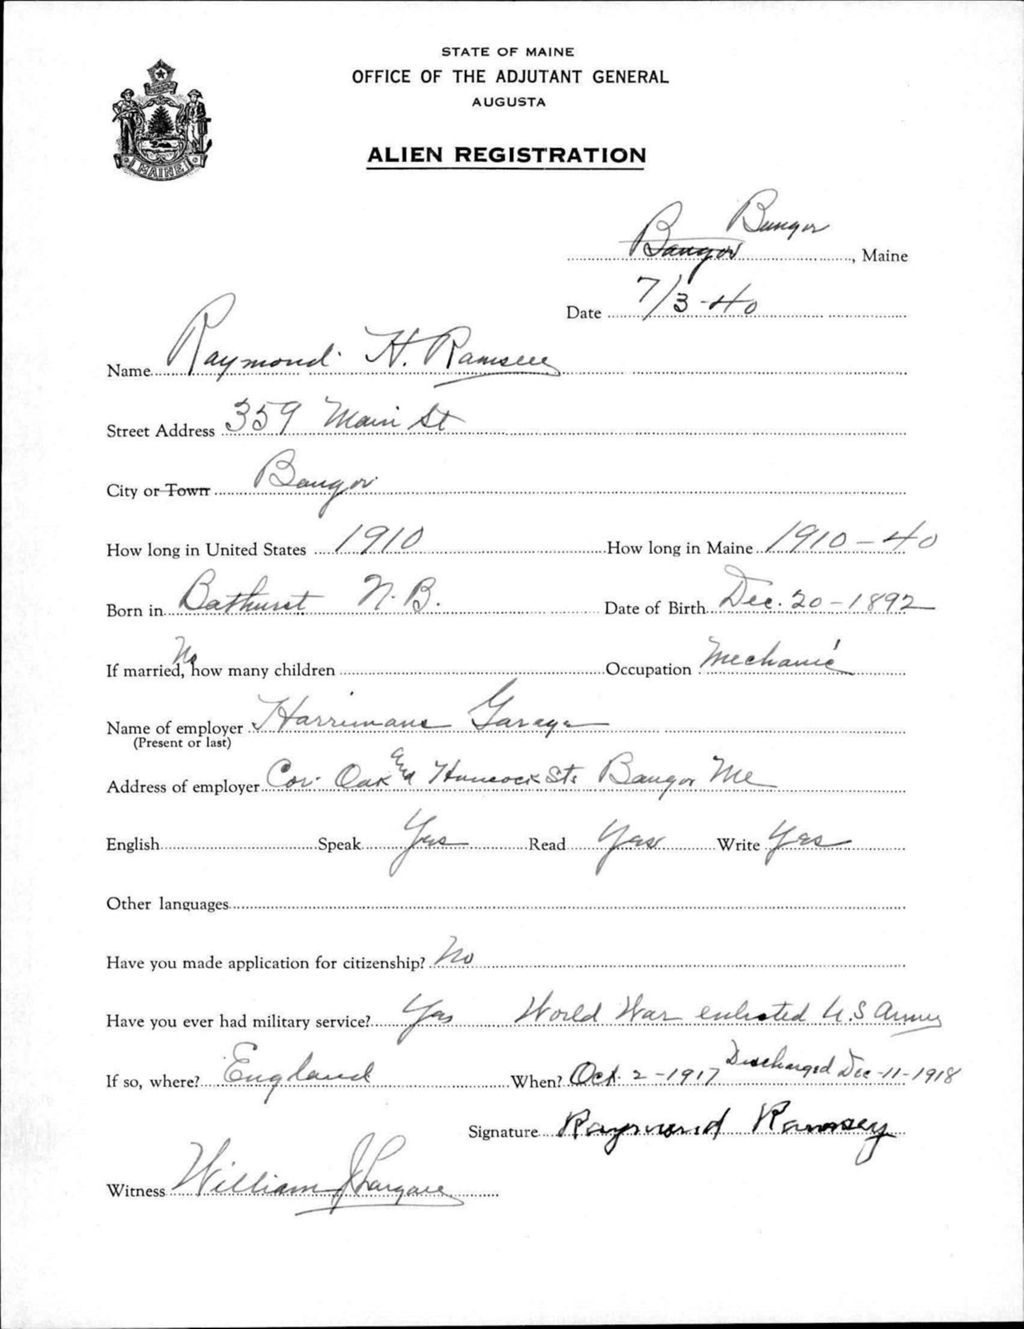 STATE OF MAINE
OFFICE OF THE ADJUTANT GENERAL
AUGUSTA
MAINE
ALIEN REGISTRATION
Bangor
Bangor, Maine
Date 7/3-40
Name Raymond H. Ramsey
Street Address 359 Main St
City or Town Bangor
How long in United States 1910 How long in Maine 1910-40
Born in Bathurst N.B. Date of Birth Dec. 20-1892
If married, No how many children Occupation Mechanic
Name of employer Harrimans Garage
(Present or last)
Address of employer Cor. Oak and Hancock Sts Bangor Me
English Speak Yes Read Yes Write Yes
Other languages
Have you made application for citizenship? No
Have you ever had military service? Yes World War enlisted U.S Army
If so, where? England When? Oct. 2-1917 Discharged Dec-11-1918
Signature Raymond Ramsey
Witness William J